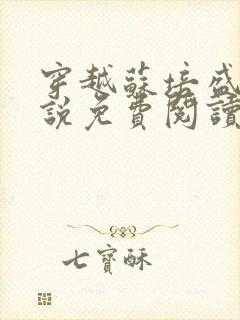 穿越蘇培盛
說免費閱讀
七寶酥